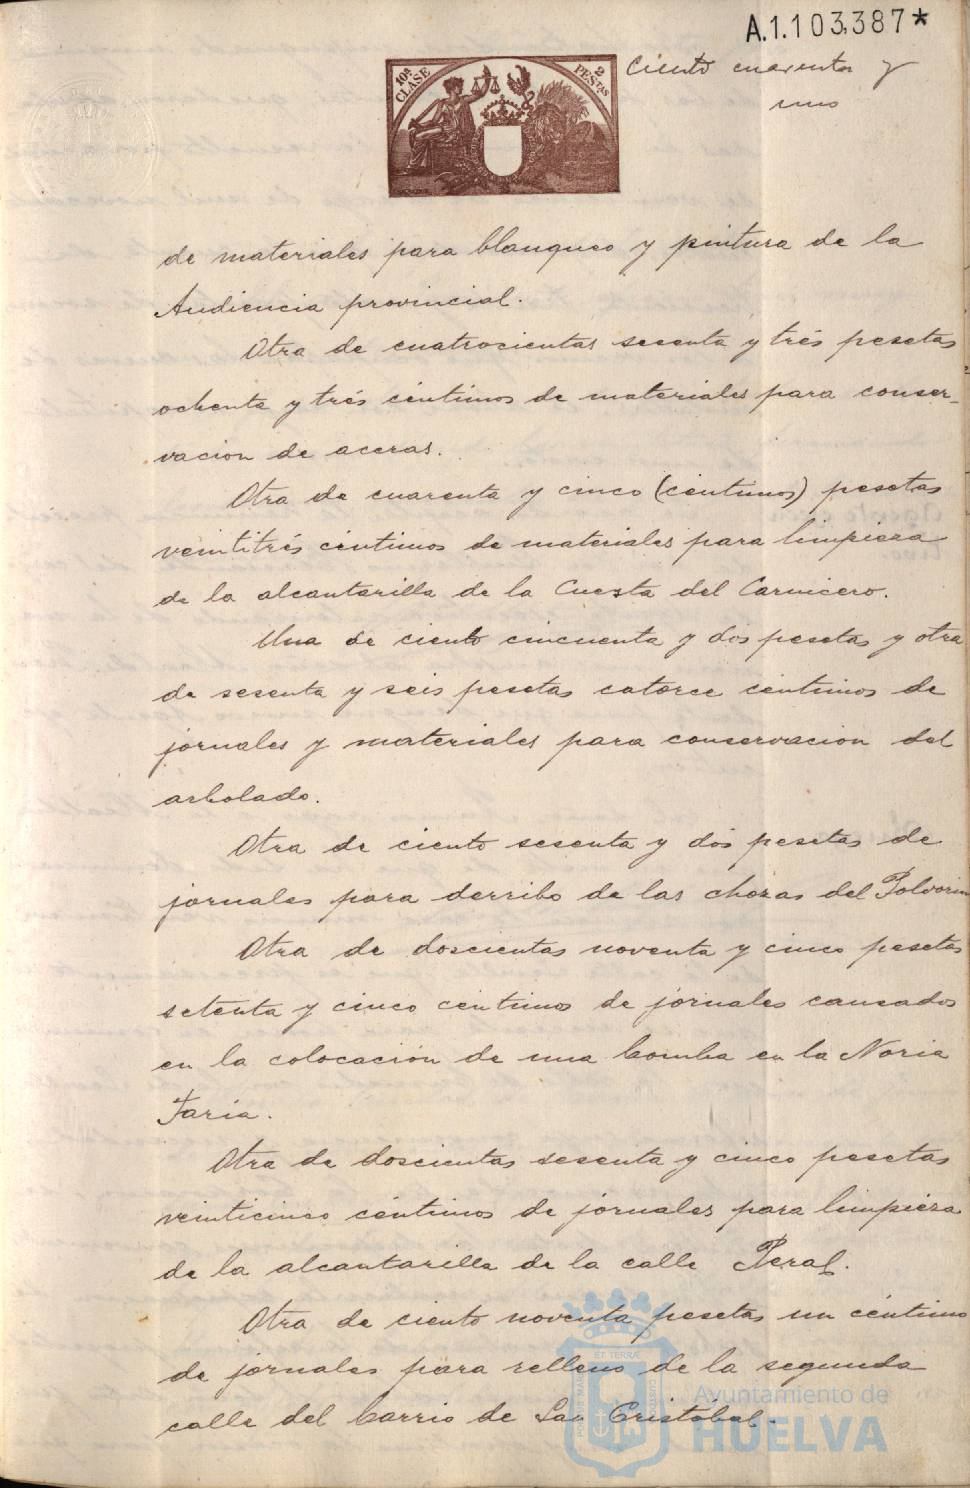 A.1.103,387*
10ª CLASE
2 PESTAS
Ciento cuarenta y
uno
de materiales para blanqueo y pintura de la
Audiencia provincial.
Otra de cuatrocientas sesenta y trés pesetas
ochenta y trés céntimos de materiales para conser-
vacion de aceras.
Otra de cuarenta y cinco (centimos) pesetas
veintitrés céntimos de materiales para limpieza
de la alcantarilla de la Cuesta del Carnicero.
Una de ciento cincuenta y dos pesetas y otra
de sesenta y seis pesetas catorce céntimos de
jornales y materiales para conservacion del
arbolado.
Otra de ciento sesenta y dos pesetas de
jornales para derribo de las chozas del Polvorin
Otra de doscientas noventa y cinco pesetas
setenta y cinco céntimos de jornales causados
en la colocación de una bomba en la Noria
Faria.
Otra de doscientas sesenta y cinco pesetas
veinticinco céntimos de jornales para limpieza
de la alcantarilla de la calle Peral.
Otra de ciento noventa pesetas un céntimo
de jornales para relleno de la segunda
calle del barrio de San Cristóbal.
ET TERRÆ
PORTUS MARIS
CUSTODIA
Ayuntamiento de
HUELVA